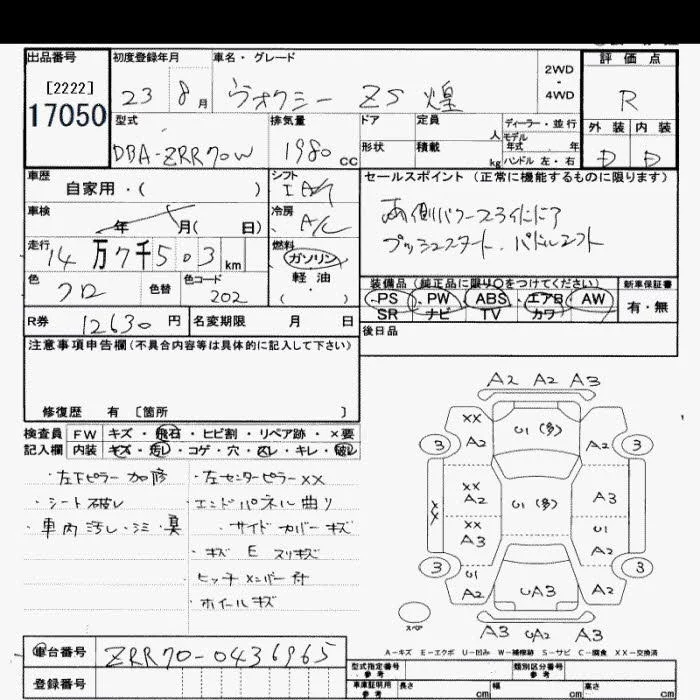 出品番号 初度登録年月 車名・グレード 2WD・4WD 評価点
[2222]
17050 23 8月 ヴォクシー ZS 煌 R
型式 排気量 ドア 定員 人 ディーラー・並行 外装 内装
モデル年式 年
DBA-ZRR70W 1980 cc 形状 積載 kg ハンドル 左・右 D D
車歴 シフト セールスポイント(正常に機能するものに限ります)
自家用・( ) IA
車検 冷房 両側パワースライドドア
年 月( 日) A/C プッシュスタート、パドルシフト
走行 燃料
14万7千503km ガソリン
軽油
( )
色 色替 色コード 装備品(純正品に限り○をつけてください) 新車保証書
クロ 202 PS PW ABS エアB AW 有・無
SR ナビ TV カワ
R券 12630円 名変期限 月 日 後日品
注意事項申告欄(不具合内容等は具体的に記入して下さい)
修復歴 有 〔箇所 〕
検査員 FW キズ・飛石・ヒビ割・リペア跡・×要
記入欄 内装 キズ・汚レ・コゲ・穴・スレ・キレ・破レ
・左下ピラー 加修 ・左センターピラーXX
・シート破レ エンドパネル曲り
・車内汚レ・シミ・臭 ・サイドカバーキズ
・キズ E スリキズ
ヒッチメンバー付
・ホイールキズ
A2 A2 A3
XX U1(多)
3 A2 A2 3
XX
A2 U1(多) A3
XX
XX U1
A3 A2
3 3
U1
A2 UA3 A2
スペア
A3 UA2 A3
A-キズ E-エクボ U-凹み W-補修跡 S-サビ C-腐食 XX-交換済
車台番号 ZRR70-0436965
型式指定番号 参考 類別区分番号 参考
登録番号 車庫証明用 参考 長さ cm 幅 cm 高さ cm